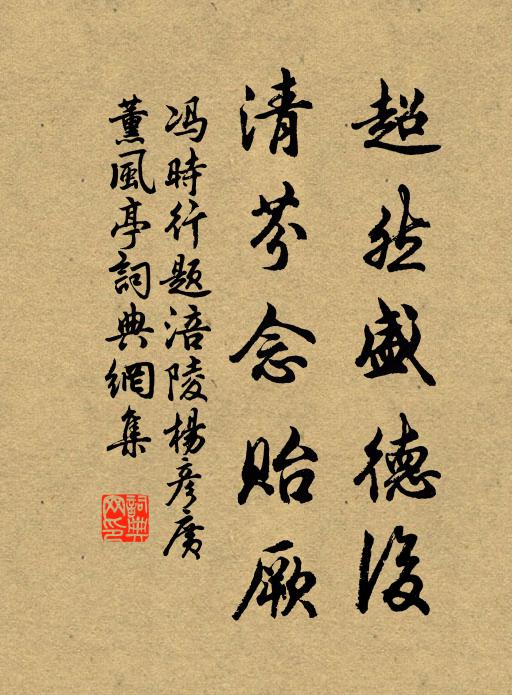 超然盛德後
清芬念貽厥
冯時行题涪陵楊彦廣
薰風亭詞典網集
詞典網印